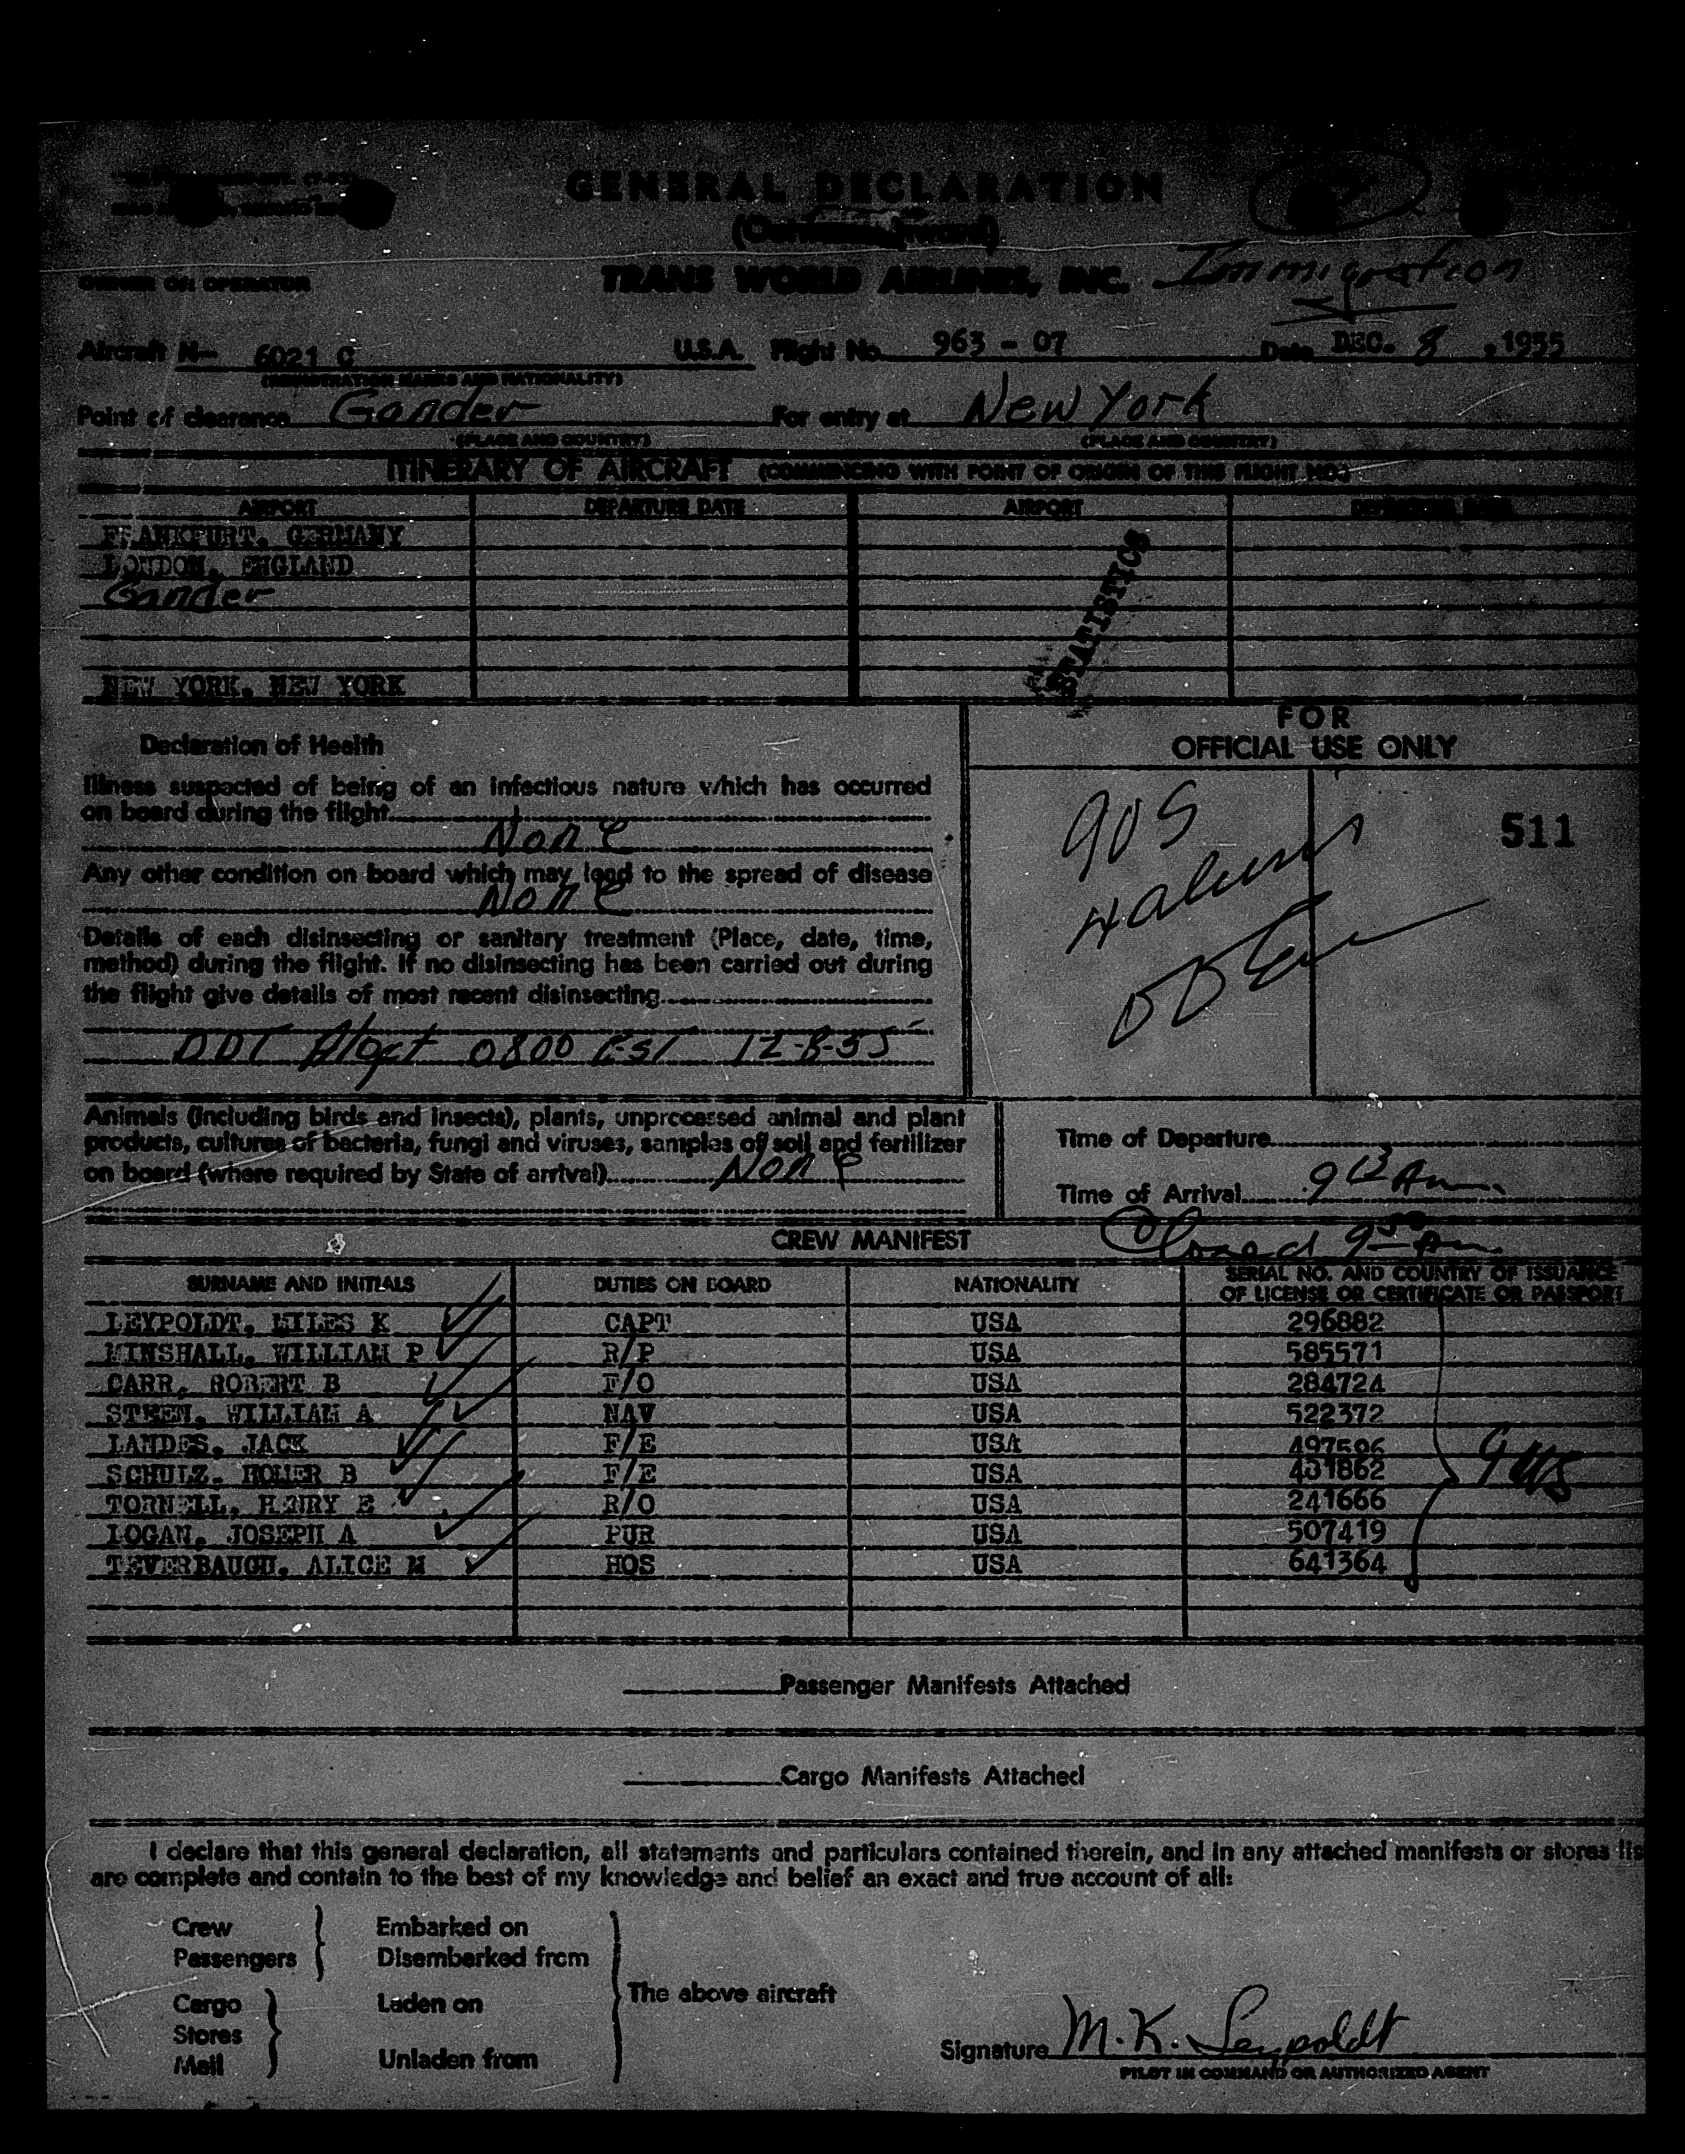 GENERAL DECLARATION
OWNER OR OPERATOR
TRANS WORLD AIRLINES, INC. Immigration
Aircraft N- 6021 C U.S.A. Flight No. 963 - 07 Date DEC. 8, 1955
(REGISTRATION MARKS AND NATIONALITY)
Point of clearance Gander For entry at New York
(PLACE AND COUNTRY) (PLACE AND COUNTRY)
ITINERARY OF AIRCRAFT (COMMENCING WITH POINT OF ORIGIN OF THIS FLIGHT NO.)
AIRPORT DEPARTURE DATE AIRPORT DEPARTURE DATE
FRANKFURT, GERMANY
LONDON, ENGLAND
Gander
NEW YORK, NEW YORK
STATISTICS
Declaration of Health
Illness suspected of being of an infectious nature which has occurred
on board during the flight
None
Any other condition on board which may lead to the spread of disease
None
Details of each disinsecting or sanitary treatment (Place, date, time,
method) during the flight. If no disinsecting has been carried out during
the flight give details of most recent disinsecting
DDT 0800 EST 12-8-55
FOR
OFFICIAL USE ONLY
905
511
Animals (including birds and insects), plants, unprocessed animal and plant
products, cultures of bacteria, fungi and viruses, samples of soil and fertilizer
on board (where required by State of arrival) None
Time of Departure
Time of Arrival 9 13 Am
Closed 9 50 Am
CREW MANIFEST
SURNAME AND INITIALS DUTIES ON BOARD NATIONALITY SERIAL NO. AND COUNTRY OF ISSUANCE
OF LICENSE OR CERTIFICATE OR PASSPORT
LEYPOLDT, MILES K CAPT USA 296882
MINSHALL, WILLIAM P R/P USA 585571
CARR, ROBERT B F/O USA 284724
STEEN, WILLIAM A NAV USA 522372
LANDES, JACK F/E USA 497596
SCHULZ, HOMER B F/E USA 431862
TORNELL, HENRY E R/O USA 241666
LOGAN, JOSEPH A PUR USA 507419
TEVERBAUGH, ALICE M HOS USA 641364
9 US
Passenger Manifests Attached
Cargo Manifests Attached
I declare that this general declaration, all statements and particulars contained therein, and in any attached manifests or stores lis
are complete and contain to the best of my knowledge and belief an exact and true account of all:
Crew Embarked on
Passengers Disembarked from
The above aircraft
Cargo Laden on
Stores
Mail Unladen from
Signature M. K. Leypoldt
PILOT IN COMMAND OR AUTHORIZED AGENT